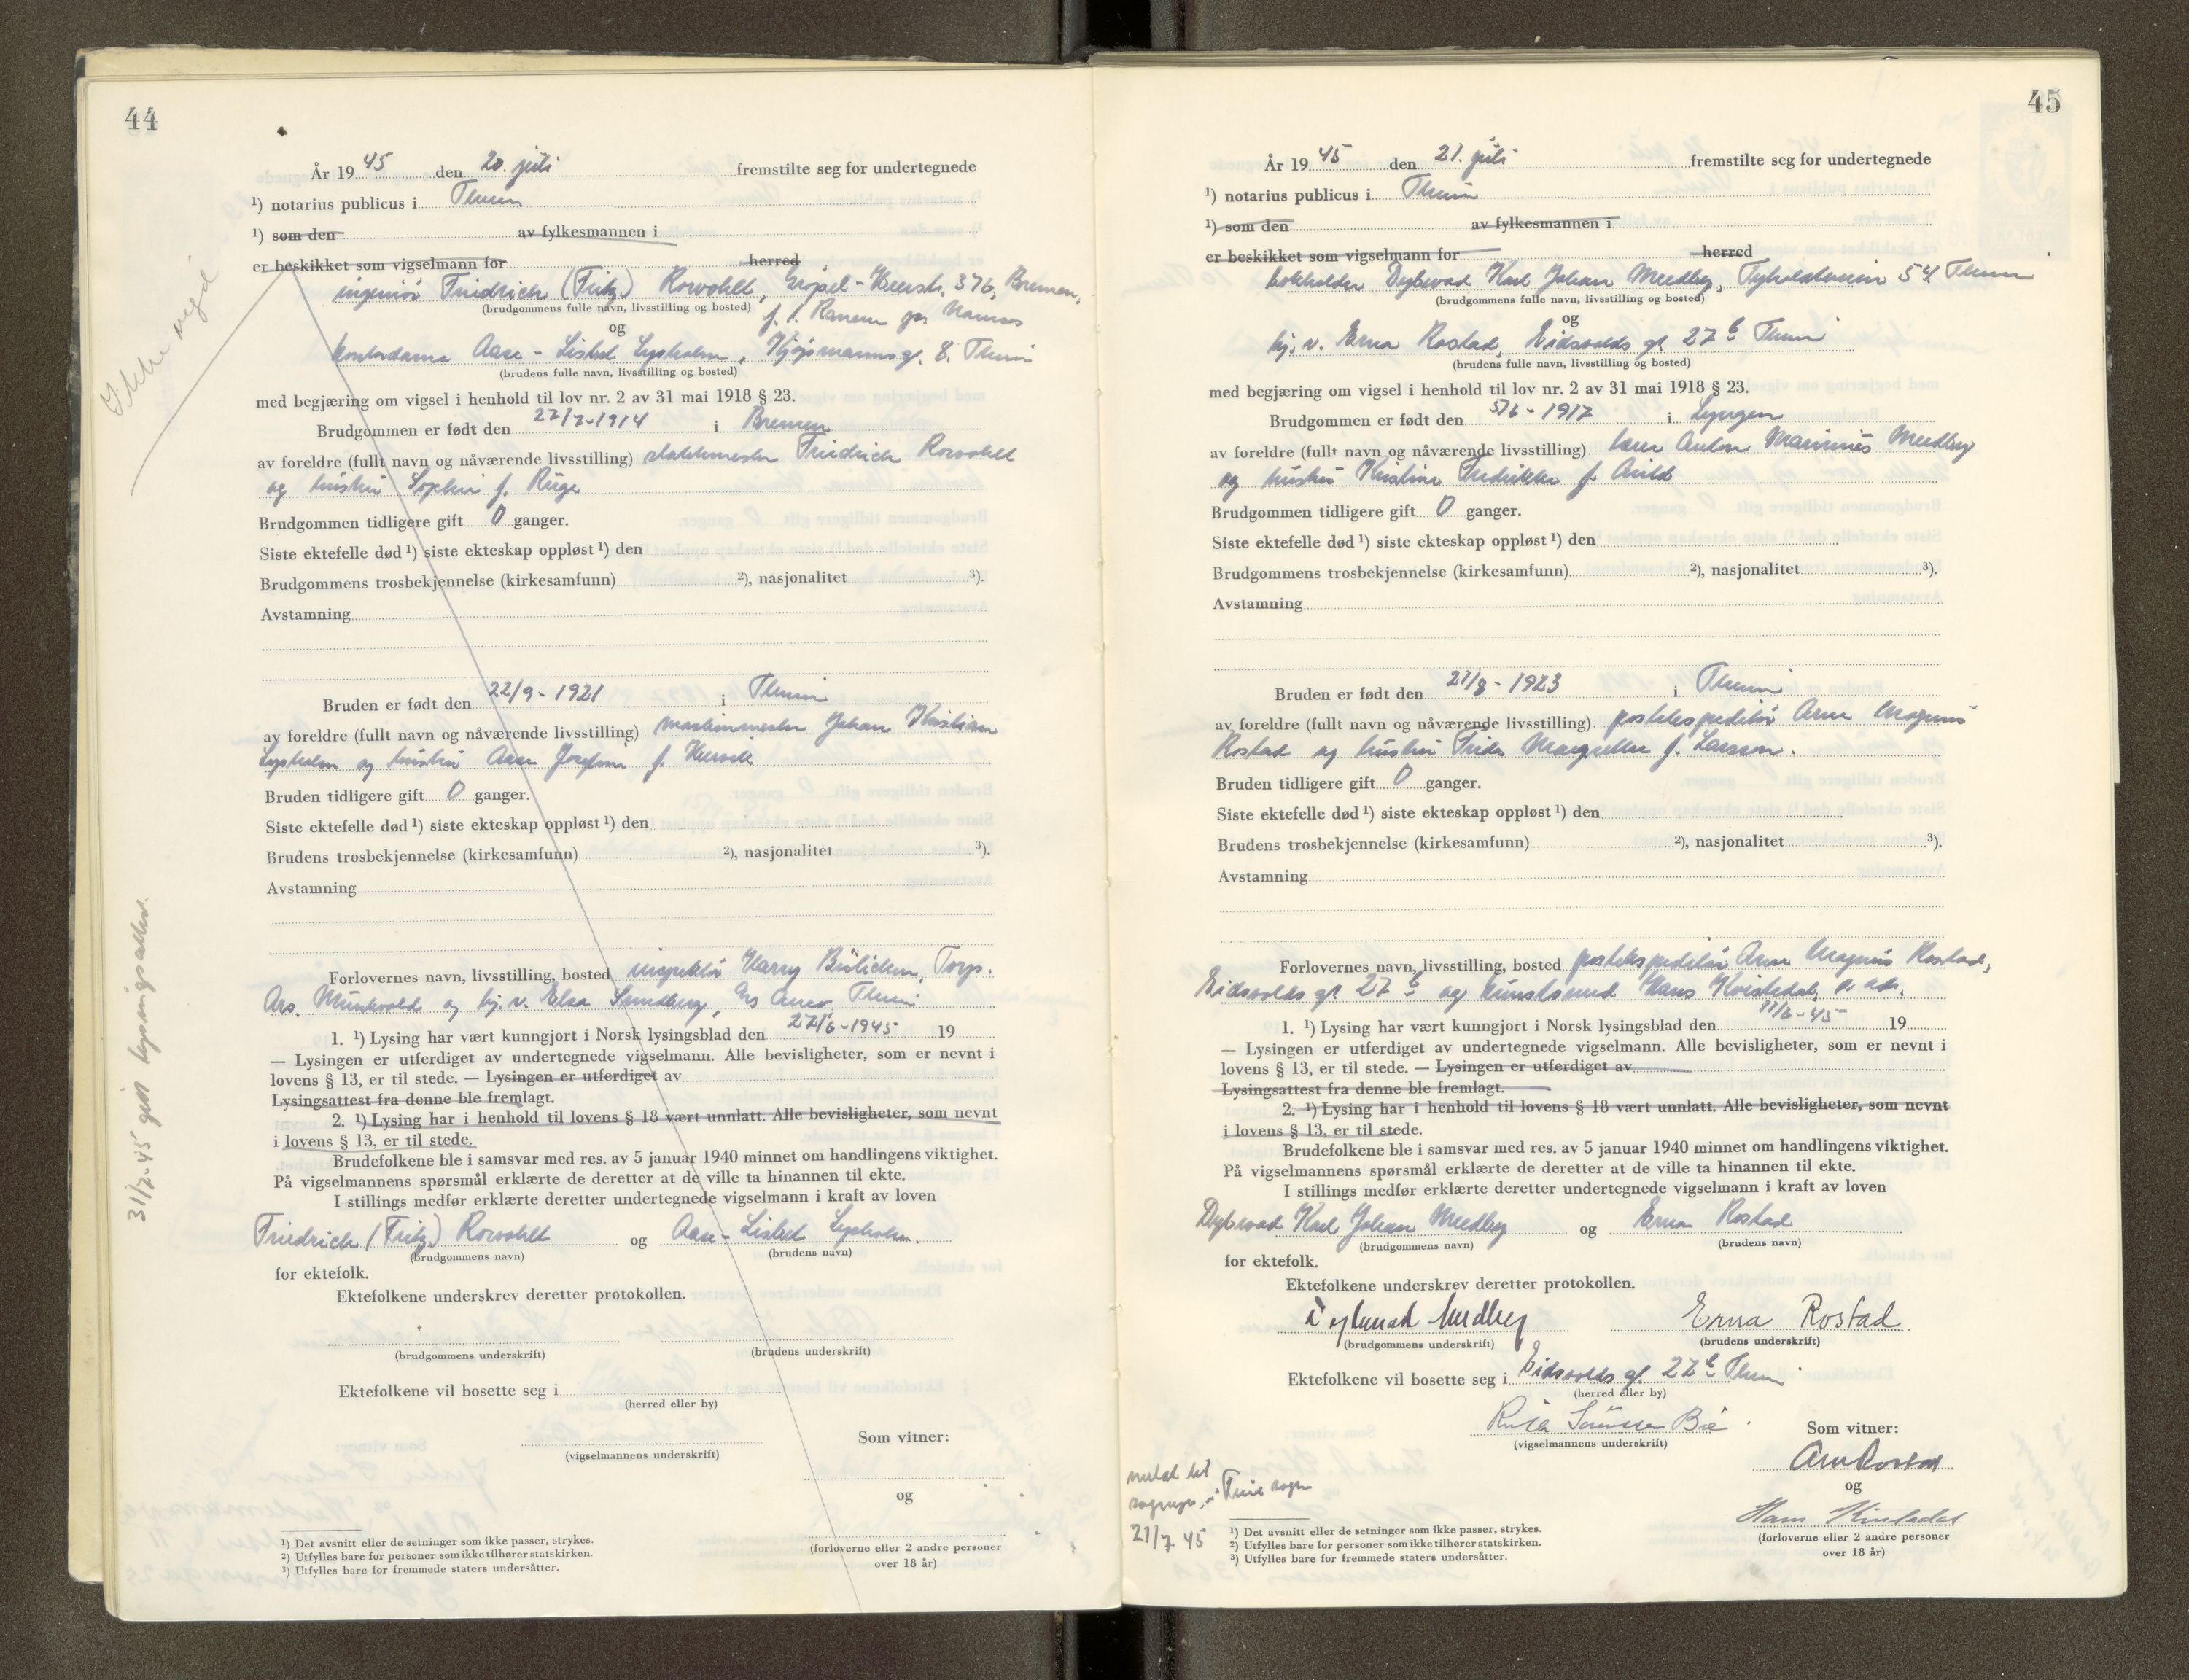 44
Ikke vigd
31/7-45 gitt lysingsattest.
År 1945 den 20. juli fremstilte seg for undertegnede
¹) notarius publicus i Thm
¹) som den av fylkesmannen i
er beskikket som vigselmann for herred
ingeniør Friedrich (Fritz) Rowohlt, 376, Bremen,
(brudgommens fulle navn, livsstilling og bosted) f. t. Ranem pr Namsos
og
kontordame Aase-Lisbet Lysholm, 8. Thm
(brudens fulle navn, livsstilling og bosted)
med begjæring om vigsel i henhold til lov nr. 2 av 31 mai 1918 § 23.
Brudgommen er født den 27/7-1914 i Bremen
av foreldre (fullt navn og nåværende livsstilling) Friedrich Rowohlt
og hustru Sophie f. Ruge
Brudgommen tidligere gift 0 ganger.
Siste ektefelle død ¹) siste ekteskap oppløst ¹) den
Brudgommens trosbekjennelse (kirkesamfunn) ²), nasjonalitet ³).
Avstamning
Bruden er født den 22/9-1921 i Thm
av foreldre (fullt navn og nåværende livsstilling) maskinmester Johan Kristian
Lysholm og hustru Aase Josefine f.
Bruden tidligere gift 0 ganger.
Siste ektefelle død ¹) siste ekteskap oppløst ¹) den
Brudens trosbekjennelse (kirkesamfunn) ²), nasjonalitet ³).
Avstamning
Forlovernes navn, livsstilling, bosted inspektør Harry
Munkvold og hj.v. Elsa Sundberg, Thm
1. ¹) Lysing har vært kunngjort i Norsk lysingsblad den 27/6-1945 19
— Lysingen er utferdiget av undertegnede vigselmann. Alle bevisligheter, som er nevnt i
lovens § 13, er til stede. — Lysingen er utferdiget av
Lysingsattest fra denne ble fremlagt.
2. ¹) Lysing har i henhold til lovens § 18 vært unnlatt. Alle bevisligheter, som nevnt
i lovens § 13, er til stede.
Brudefolkene ble i samsvar med res. av 5 januar 1940 minnet om handlingens viktighet.
På vigselmannens spørsmål erklærte de deretter at de ville ta hinannen til ekte.
I stillings medfør erklærte deretter undertegnede vigselmann i kraft av loven
Friedrich (Fritz) Rowohlt og Aase-Lisbet Lysholm.
(brudgommens navn) (brudens navn)
for ektefolk.
Ektefolkene underskrev deretter protokollen.
(brudgommens underskrift) (brudens underskrift)
Ektefolkene vil bosette seg i
(herred eller by)
(vigselmannens underskrift)
Som vitner:
og
(forloverne eller 2 andre personer
over 18 år)
¹) Det avsnitt eller de setninger som ikke passer, strykes.
²) Utfylles bare for personer som ikke tilhører statskirken.
³) Utfylles bare for fremmede staters undersåtter.
45
År 1945 den 21. juli fremstilte seg for undertegnede
¹) notarius publicus i Thm
¹) som den av fylkesmannen i
er beskikket som vigselmann for herred
bokholder Dybwad Karl Johan Medby, 54 Thm
(brudgommens fulle navn, livsstilling og bosted)
og
hj.v. Erna Rostad, Eidsvolds gt 27 b Thm
(brudens fulle navn, livsstilling og bosted)
med begjæring om vigsel i henhold til lov nr. 2 av 31 mai 1918 § 23.
Brudgommen er født den 5/6-1917 i Lyngen
av foreldre (fullt navn og nåværende livsstilling) lærer Anton Marinius Medby
og hustru Kristine Fredrikke f.
Brudgommen tidligere gift 0 ganger.
Siste ektefelle død ¹) siste ekteskap oppløst ¹) den
Brudgommens trosbekjennelse (kirkesamfunn) ²), nasjonalitet ³).
Avstamning
Bruden er født den 27/8-1923 i Thm
av foreldre (fullt navn og nåværende livsstilling) postekspeditør Arne Magnus
Rostad og hustru Frida Margrethe f. Larsson.
Bruden tidligere gift 0 ganger.
Siste ektefelle død ¹) siste ekteskap oppløst ¹) den
Brudens trosbekjennelse (kirkesamfunn) ²), nasjonalitet ³).
Avstamning
Forlovernes navn, livsstilling, bosted postekspeditør Arne Magnus Rostad,
Eidsvolds gt 27 b og Hans Kvistedal, s. adr.
1. ¹) Lysing har vært kunngjort i Norsk lysingsblad den 11/6-45 19
— Lysingen er utferdiget av undertegnede vigselmann. Alle bevisligheter, som er nevnt i
lovens § 13, er til stede. — Lysingen er utferdiget av
Lysingsattest fra denne ble fremlagt.
2. ¹) Lysing har i henhold til lovens § 18 vært unnlatt. Alle bevisligheter, som nevnt
i lovens § 13, er til stede.
Brudefolkene ble i samsvar med res. av 5 januar 1940 minnet om handlingens viktighet.
På vigselmannens spørsmål erklærte de deretter at de ville ta hinannen til ekte.
I stillings medfør erklærte deretter undertegnede vigselmann i kraft av loven
Dybwad Karl Johan Medby og Erna Rostad
(brudgommens navn) (brudens navn)
for ektefolk.
Ektefolkene underskrev deretter protokollen.
Dybwad Medby Erna Rostad
(brudgommens underskrift) (brudens underskrift)
Ektefolkene vil bosette seg i Eidsvolds gt. 27 b Thm
(herred eller by)
(vigselmannens underskrift)
Som vitner:
Arne Rostad
og
Hans Kvistedal
(forloverne eller 2 andre personer
over 18 år)
meldt til
sognepr. i sogn
21/7 45
¹) Det avsnitt eller de setninger som ikke passer, strykes.
²) Utfylles bare for personer som ikke tilhører statskirken.
³) Utfylles bare for fremmede staters undersåtter.